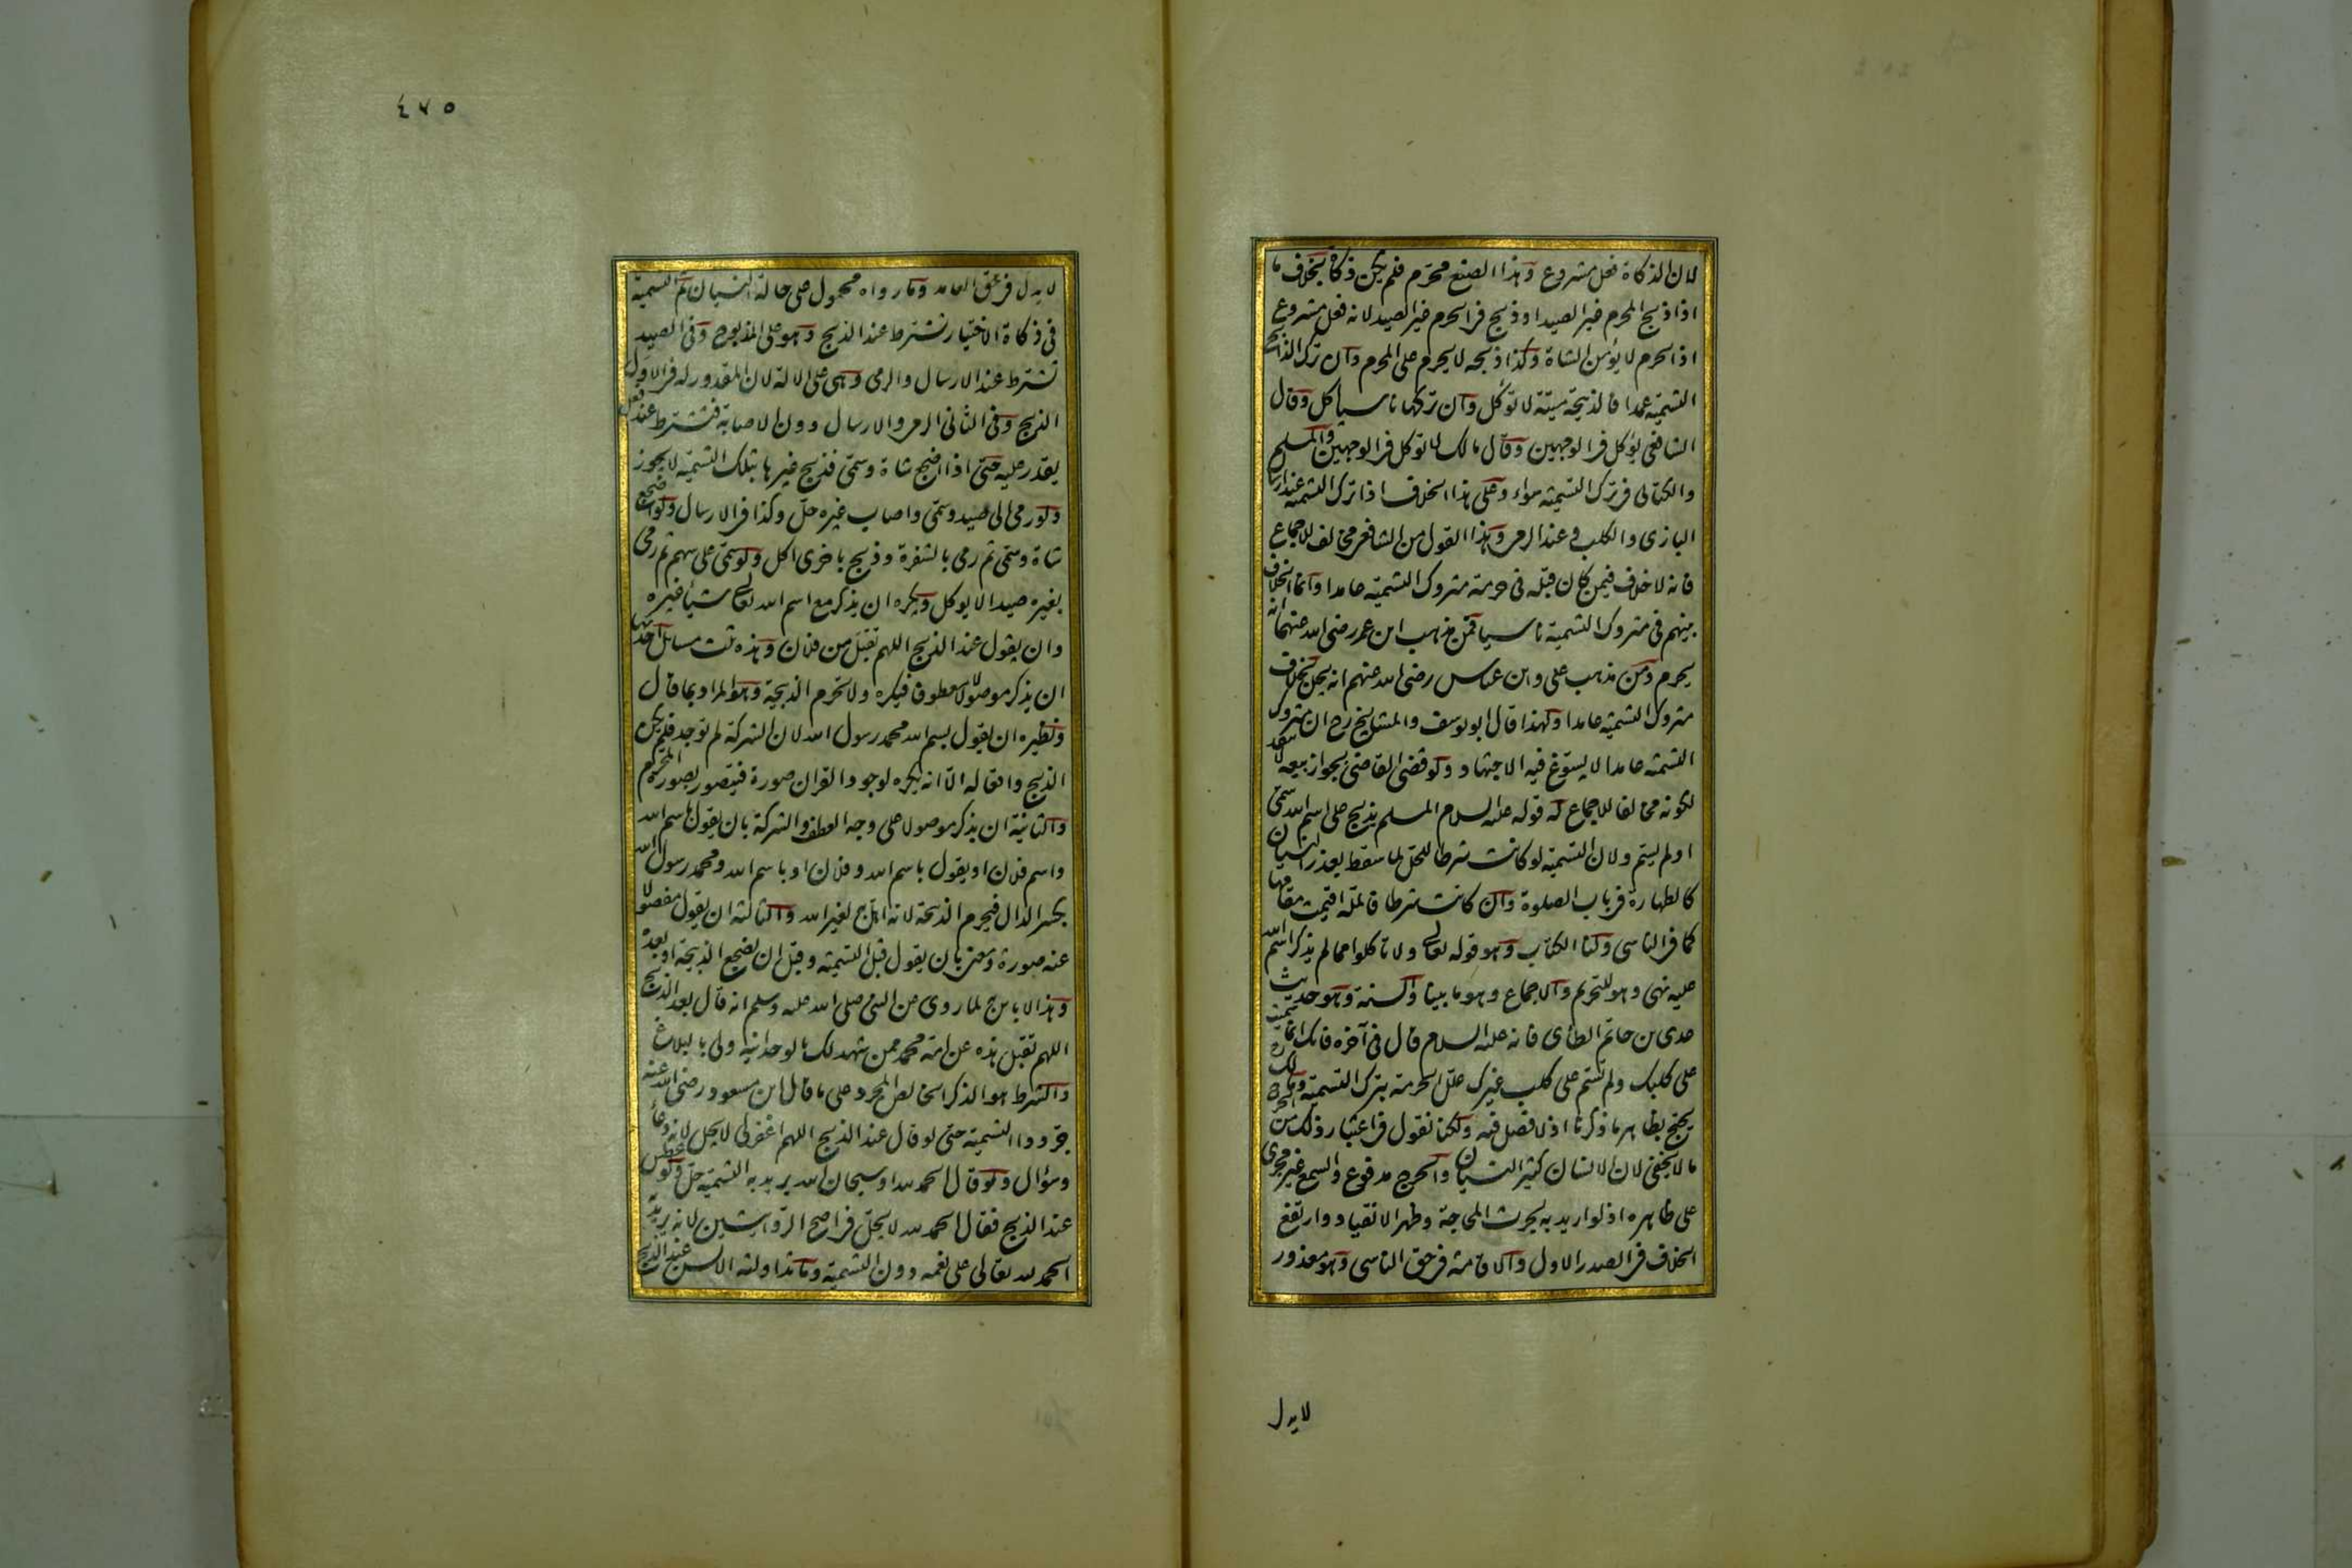 لان الذكاة فعل مشروع وهذا الصنع محرم فلم يكن ذكاة بخلاف ما
اذا ذبح المحرم غير الصيد او ذبح فى الحرم غير الصيد لانه فعل مشروع
اذ الحرم لا يؤمن الشاة وكذا ذبحه لا يحرم على المحرم وان ترك الذابح
التسمية عمدا فالذبيحة ميتة لا تؤكل وان تركها ناسيا اكل وقال
الشافعى يؤكل فى الوجهين وقال مالك لا تؤكل فى الوجهين والمسلم
والكتابى فى ترك التسمية سواء وعلى هذا الخلاف اذا ترك التسمية عند ارسال
البازى والكلب وعند الرمى وهذا القول من الشافعى مخالف للاجماع
فانه لا خلاف فيمن كان قبله فى حرمة متروك التسمية عامدا وانما الخلاف
بينهم فى متروك التسمية ناسيا فمن مذهب ابن عمر رضى الله عنهما انه
يحرم ومن مذهب على وابن عباس رضى الله عنهم انه يحل بخلاف
متروك التسمية عامدا ولهذا قال ابو يوسف والمشايخ رح ان متروك
التسمية عامدا لا يسوغ فيه الاجتهاد ولو قضى القاضى بجواز بيعه لا ينفذ
لكونه مخالفا للاجماع له قوله عليه السلام المسلم يذبح على اسم الله سمى
او لم يسم ولان التسمية لو كانت شرطا للحل لما سقط بعذر النسيان
كالطهارة فى باب الصلوة وان كانت شرطا فالملة اقيمت مقامها
كما فى الناسى ولنا الكتاب وهو قوله تعالى ولا تاكلوا مما لم يذكر اسم الله
عليه نهى وهو للتحريم والاجماع وهو ما بينا والسنة وهو حديث
عدى بن حاتم الطائى فانه عليه السلام قال فى آخره فانك انما سميت
على كلبك ولم تسم على كلب غيرك علل الحرمة بترك التسمية ومالك
يحتج بظاهر ما ذكرنا اذ لا فصل فيه ولكنا نقول فى اعتبار ذلك من الحرج
ما لا يخفى لان الانسان كثير النسيان والحرج مدفوع والسمع غير مجرى
على ظاهره اذ لو اريد به لجرت المحاجة وظهر الانقياد وارتفع
الخلاف فى الصدر الاول والاقامة فى حق الناسى وهو معذور
لا يدل
٤٧٥
لا يدل فى حق العامد وما رواه محمول على حالة النسيان ثم التسمية
فى ذكاة الاختيار تشترط عند الذبح وهو على المذبوح وفى الصيد
تشترط عند الارسال والرمى وهى على الالة لان المقدور له فى الاول
الذبح وفى الثانى الرمى والارسال دون الاصابة فتشترط عند فعل
يقدر عليه حتى اذا اضجع شاة وسمى فذبح غيرها بتلك التسمية لا يجوز
ولو رمى الى صيد وسمى واصاب غيره حل وكذا فى الارسال ولو اضجع
شاة وسمى ثم رمى بالشفرة وذبح باخرى اكل ولو سمى على سهم ثم رمى
بغيره صيدا لا يوكل ويكره ان يذكر مع اسم الله تعالى شيئا غيره
وان يقول عند الذبح اللهم تقبل من فلان وهذه ثلث مسائل احديها
ان يذكر موصولا لا معطوفا فيكره ولا تحرم الذبيحة وهو المراد بما قال
ونظيره ان يقول بسم الله محمد رسول الله لان الشركة لم توجد فلم يكن
الذبح واقعا له الا انه يكره لوجود القران صورة فيتصور بصورة المحرم
والثانية ان يذكر موصولا على وجه العطف والشركة بان يقول باسم الله
واسم فلان او يقول باسم الله وفلان او باسم الله ومحمد رسول الله
بكسر الدال فيحرم الذبيحة لانه اهل به لغير الله والثالثة ان يقول مفصولا
عنه صورة ومعنى بان يقول قبل التسمية وقبل ان يضجع الذبيحة او بعده
وهذا لا باس به لما روى عن النبى صلى الله عليه وسلم انه قال بعد الذبح
اللهم تقبل هذه عن امة محمد ممن شهد لك بالوحدانية ولى بالبلاغ
والشرط هو الذكر الخالص المجرد على ما قال ابن مسعود رضى الله عنه
جردوا التسمية حتى لو قال عند الذبح اللهم اغفر لى لا يحل لانه دعاء
وسؤال ولو قال الحمد لله او سبحان الله يريد به التسمية حل ولو عطس
عند الذبح فقال الحمد لله لا يحل فى اصح الروايتين لانه يريد به
الحمد لله تعالى على نعمه دون التسمية وما تداولته الالسن عند الذبح